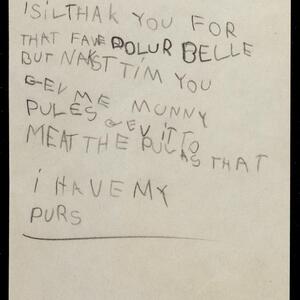 ISILTHAK YOU FOR
THAT FAVE DOLUR BELLE
BUT NAKST TIM YOU
GEV ME MUNNY
PULES GEV IT TO
MEAT THE PULAS THAT
I HAVE MY
PURS